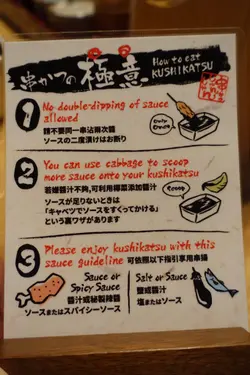 串かつの極意
How to eat
KUSHIKATSU
1 No double-dipping of sauce
allowed
請不要同一串沾兩次醬
ソースの二度漬けはお断り
Only
Once
2 You can use cabbage to scoop
more sauce onto your kushikatsu
若蘸醬汁不夠,可利用椰菜添加醬汁
ソースが足りないときは
「キャベツでソースをすくってかける」
という裏ワザがあります
Scoop
3 Please enjoy kushikatsu with this
sauce guideline 可依照以下指引享用串揚
Sauce or
Spicy Sauce
醬汁或秘製辣醬
ソースまたはスパイシーソース
Salt or Sauce
鹽或醬汁
塩またはソース